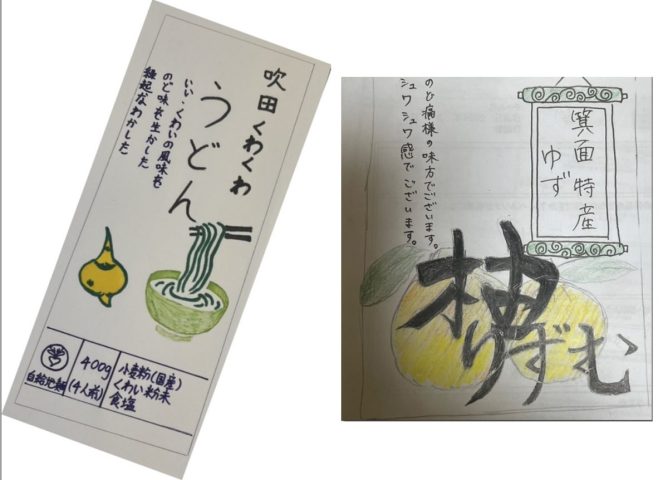 吹田くわくわ
うどん
いい・くわいの風味も
のど味も生かした
縁起なわかした
400g
(4人前)
小麦粉(国産)
くわい粉末
食塩
箕面特産
ゆず
のど痛様の味方でございます。
シュワシュワ感でございます。
柚
りずむ